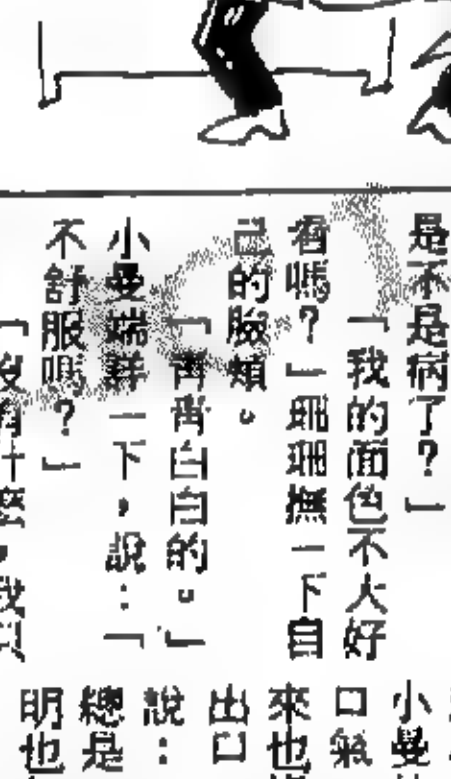 是不是病了?」
「我的面色不大好
看嗎?」珊珊撫一下自
己的臉頰。
「青青白白的。」
小曼端詳一下,說:「
不舒服嗎?」
「沒有什麼,我只
小曼
口氣
來也
出口
說:
總是
明也